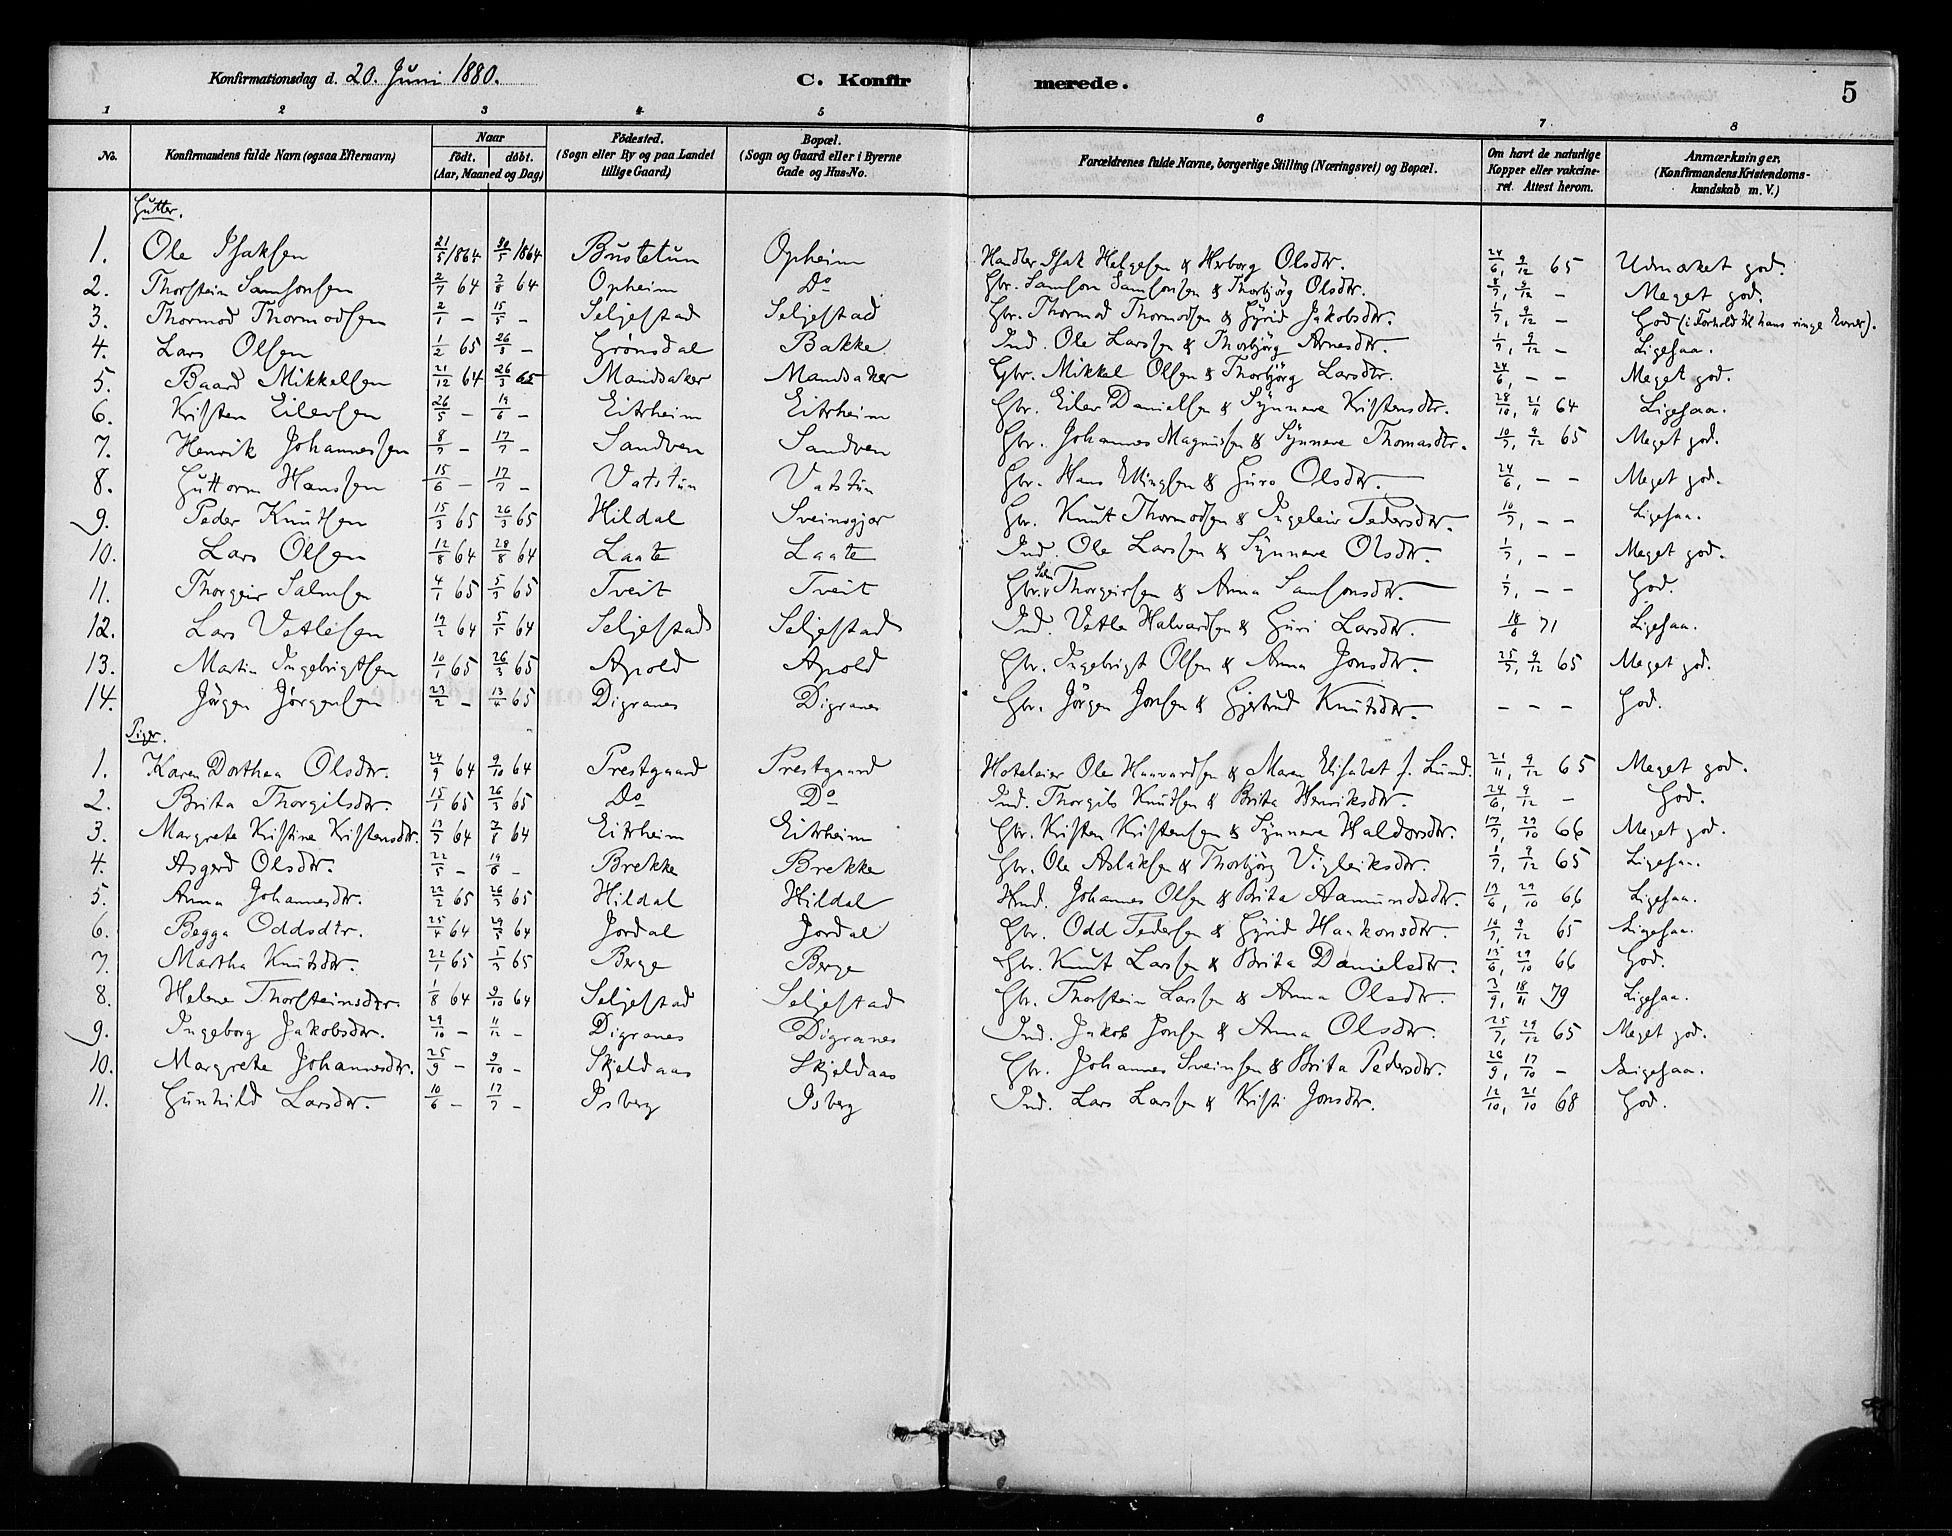 Konfirmationsdag d. 20. Juni 1880. C. Konfir merede. 5
1 2 3 4 5 6 7 8
No. Konfirmandens fulde Navn (ogsaa Efternavn) Naar födt. döbt. (Aar, Maaned og Dag) Födested. (Sogn eller By og paa Landet tillige Gaard) Bopæl. (Sogn og Gaard eller i Byerne Gade og Hus-No. Forældrenes fulde Navne, borgerlige Stilling (Næringsvei) og Bopæl. Om havt de naturlige Kopper eller vakcineret. Attest herom. Anmærkninger, (Konfirmandens Kristendomskundskab m. V.)
Gutter.
1. Ole Isaksen 21/5 1864 30/5 1864 Bustetun Opheim Handler Isak Helgesen & Herborg Olsdtr. 24/6, 9/12 65 Udmærket god.
2. Thorstein Samsonsen 2/7 64 2/8 64 Opheim Do Gbr. Samson Samsonsen & Thorbjörg Olsdtr. 8/7, 9/12 — Meget god.
3. Thormod Thormodsen 2/1 — 15/5 — Seljestad Seljestad Gbr. Thormod Thormodsen & Gyrid Jakobsdtr. 1/7, 9/12 — God (i Forhold til hans ringe Evner).
4. Lars Olsen 1/2 65 26/3 — Grønsdal Bakke Ind. Ole Larssen & Thorbjörg Arnesdtr. 1/7, 9/12 — Ligesaa.
5. Baard Mikkelsen 21/12 64 26/3 65 Mandsaker Mandsaker Gbr. Mikkel Olsen & Thorbjörg Larsdtr. 24/6, — — Meget god.
6. Kristen Eilevsen 26/5 — 19/6 — Eitrheim Eitrheim Gbr. Eilev Danielsen & Synneve Kristensdtr. 28/10, 21/11 64 Ligesaa.
7. Henrik Johannessen 8/7 — 17/7 — Sandven Sandven Gbr. Johannes Magnussen & Synneve Thomasdtr. 10/7, 9/12 65 Meget god.
8. Guttorm Hanssen 15/6 — 17/7 — Vatstun Vatstun Gbr. Hans Ellingsen & Guro Olsdtr. 24/6, — — Meget god.
9. Peder Knutsen 15/3 65 26/3 65 Hildal Sveinsgjor Gbr. Knut Thormodsen & Ingeleiv Pedersdtr. 10/7, — — Ligesaa.
10. Lars Olsen 12/8 64 28/8 64 Laate Laate Ind. Ole Larssen & Synneve Olsdtr. 1/7, — — Meget god.
11. Thorgeir Salmsen 4/1 65 5/3 65 Tveit Tveit Gbr. Salm Thorgeirsen & Anna Samsonsdtr. 1/7, — — God.
12. Lars Vetlesen 19/2 64 5/5 64 Seljestad Seljestad Ind. Vetle Halvardsen & Guri Larsdtr. 18/6 71 Ligesaa.
13. Martin Ingebrigtsen 10/1 65 26/3 65 Apold Apold Gbr. Ingebrigt Olsen & Anna Jonsdtr. 25/7, 9/12 65 Meget god.
14. Jörgen Jörgensen 23/2 — 13/4 65 Digranes Digranes Gbr. Jörgen Jonsen & Gjertrud Knutsdtr. — — — God.
Piger.
1. Karen Dorthea Olsdtr. 24/9 64 9/10 64 Prestgaard Prestgaard Hoteleier Ole Haavardsen & Maren Elisabet f. Lund. 21/11, 9/12 65 Meget god.
2. Brita Thorgilsdtr. 15/1 65 26/3 65 Do Do Ind. Thorgils Knutsen & Brita Henriksdtr. 24/6, 9/12 — God.
3. Margrete Kristine Kristensdtr. 13/7 64 7/8 64 Eitrheim Eitrheim Gbr. Kristen Kristensen & Synneve Haldorsdtr. 17/7, 29/10 66 Meget god.
4. Asgerd Olsdtr. 22/5 — 19/6 — Brekke Brekke Gbr. Ole Aslaksen & Thorbjörg Vigleiksdtr. 1/7, 9/12 65 Ligesaa.
5. Anna Johannesdtr. 22/2 65 26/3 65 Hildal Hildal Hmd. Johannes Olsen & Brita Aamundsdtr. 19/6, 29/10 66 Ligesaa.
6. Begga Oddsdtr. 25/4 64 29/5 64 Jordal Jordal Gbr. Odd Pedersen & Gyrid Haakonsdtr. 10/7, 9/12 65 Ligesaa.
7. Martha Knutsdtr. 22/1 65 5/3 65 Berge Berge Gbr. Knut Larssen & Brita Danielsdtr. 13/6, 29/10 66 God.
8. Helene Thorsteinsdtr. 1/8 64 9/10 64 Seljestad Seljestad Gbr. Thorstein Larssen & Anna Olsdtr. 3/9, 18/11 79 Ligesaa.
9. Ingeborg Jakobsdtr. 29/10 — 11/12 — Digranes Digranes Ind. Jakob Jonsen & Anna Olsdtr. 25/7, 29/12 65 Meget god.
10. Margrete Johannesdtr. 25/9 — 9/10 — Skjeldaas Skjeldaas Gbr. Johannes Sveinsen & Brita Pedersdtr. 26/9, 17/10 — Ligesaa.
11. Gunhild Larsdtr. 10/6 — 17/7 — Isberg Isberg Ind. Lars Larssen & Kristi Jonsdtr. 12/10, 21/10 68 God.